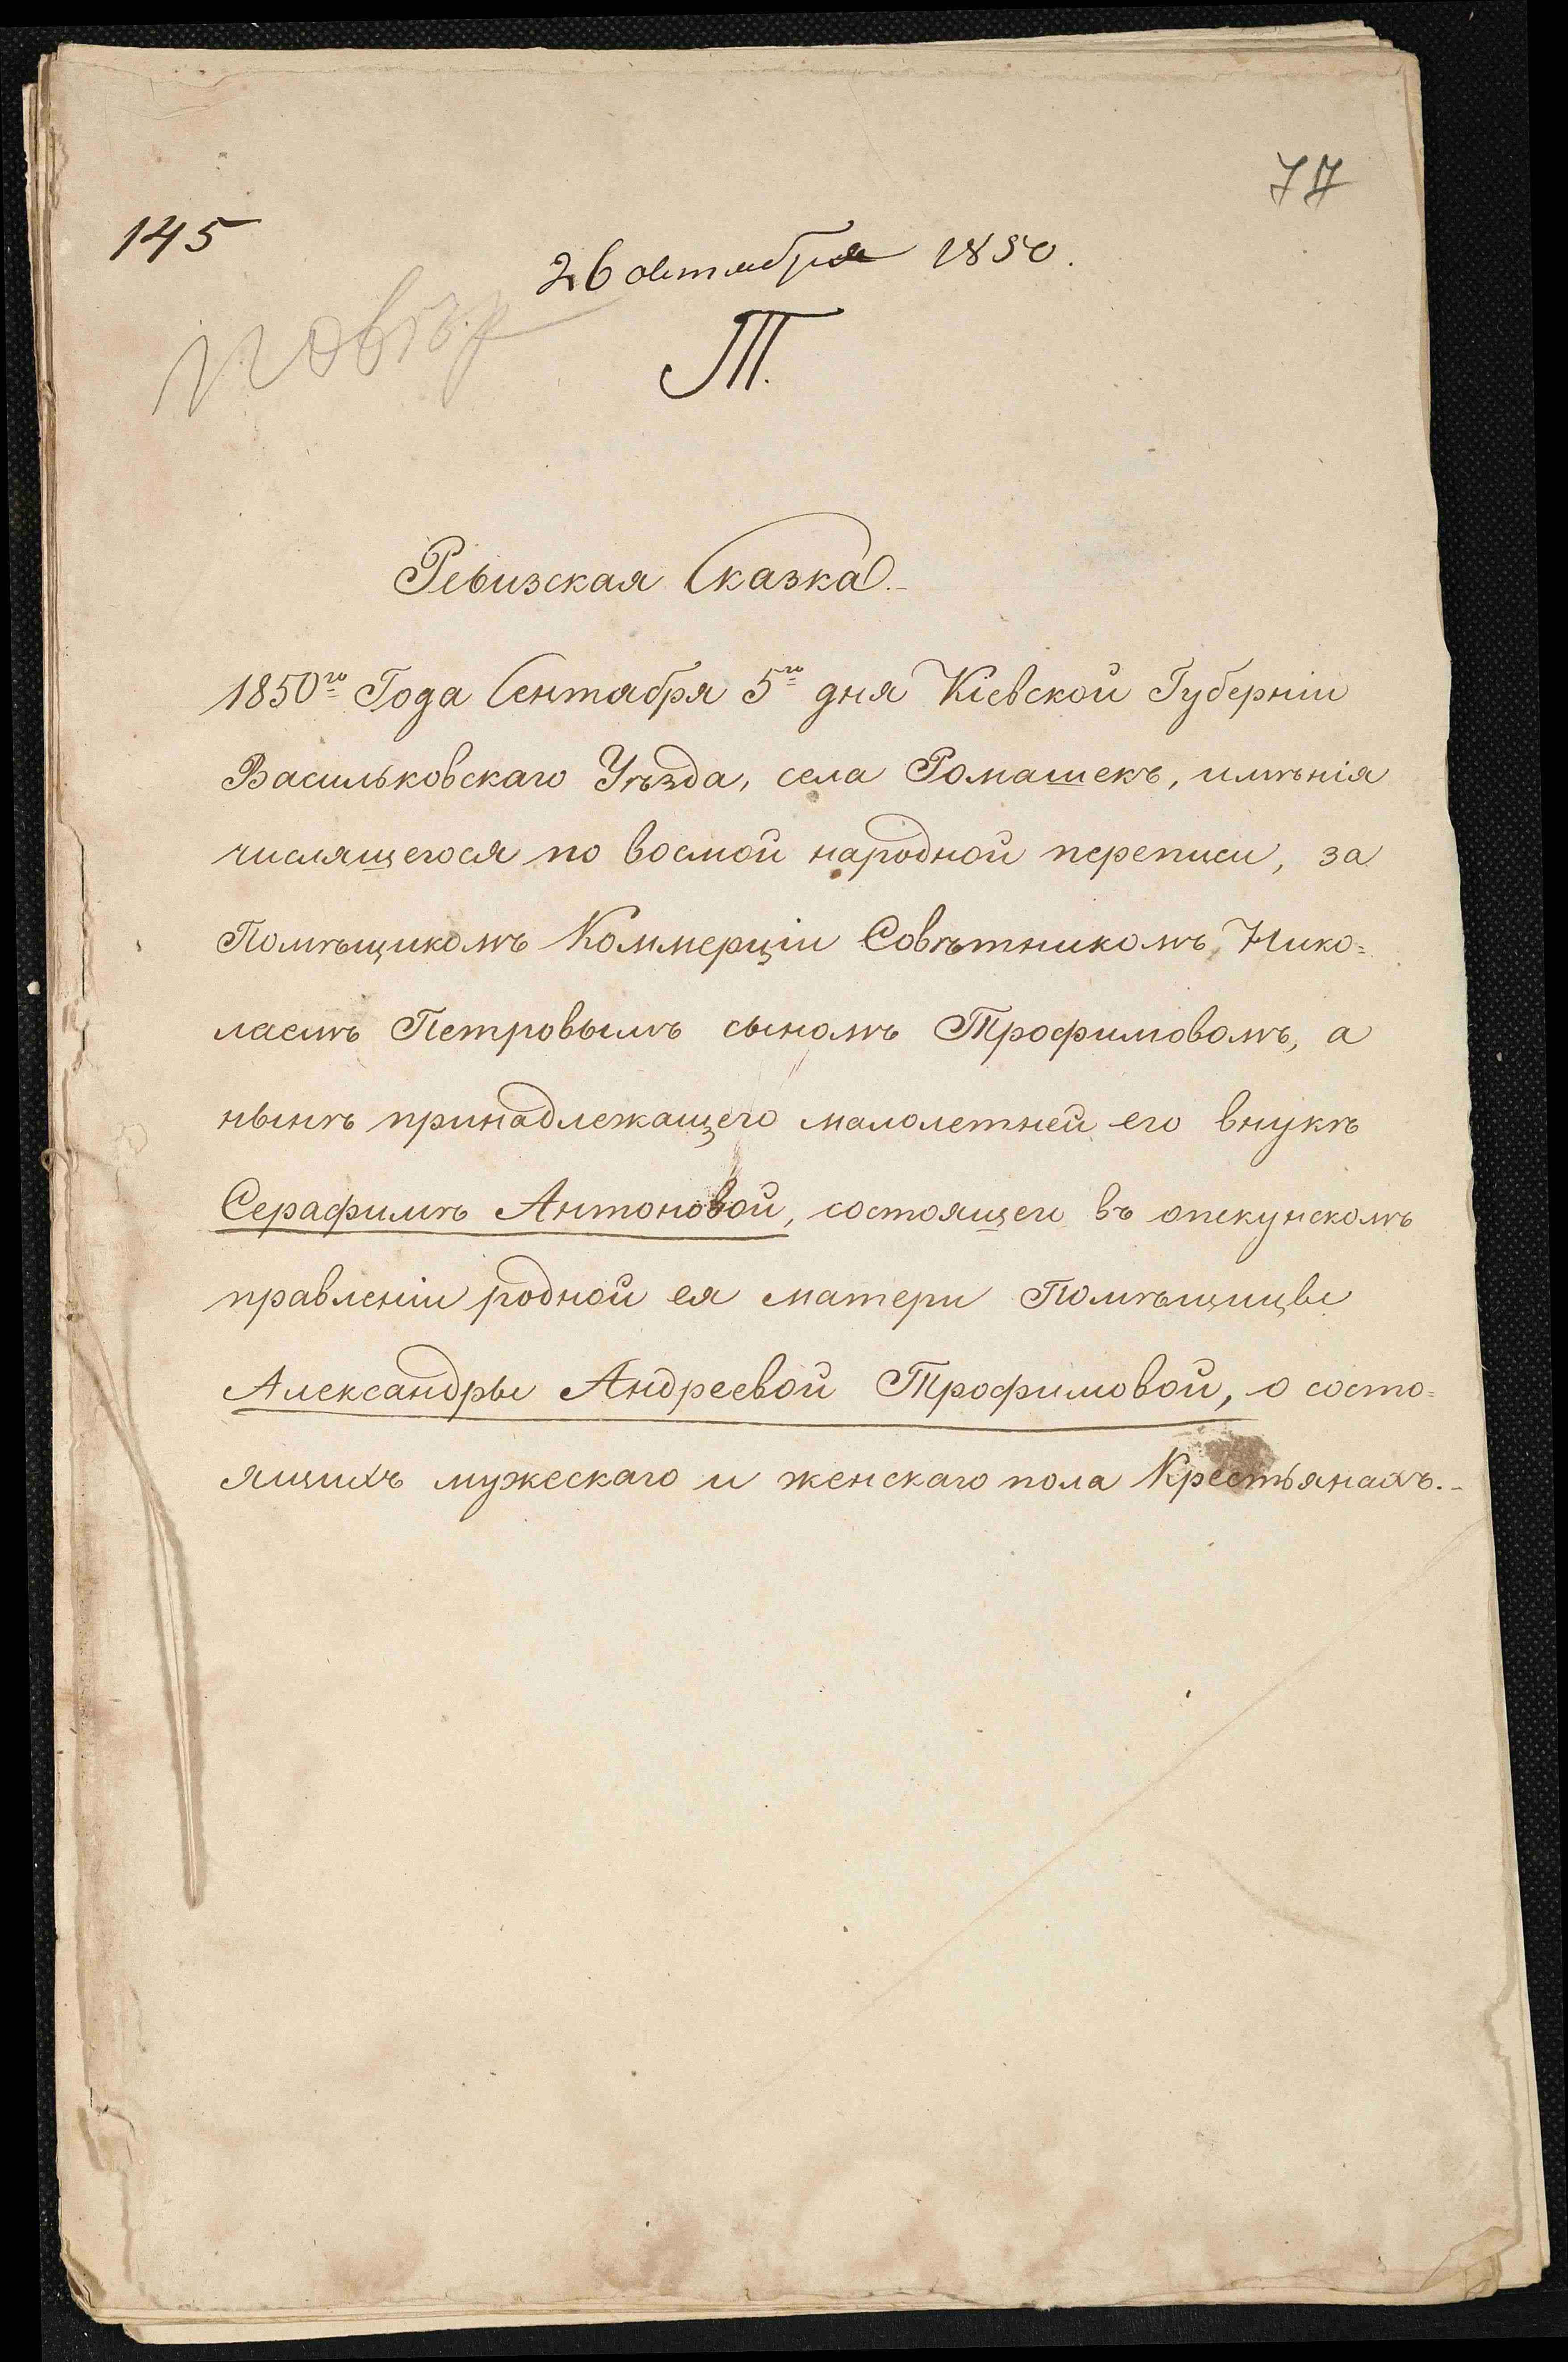 77
145
26 октября 1850.
повѣр
Т.
Ревизская Сказка.-
1850го Года Сентября 5го дня Кіевской Губерніи
Васильковскаго Уѣзда, села Ромашекъ, имѣнія
числящегося по восмой народной переписи, за
Помѣщикомъ Коммерціи Совѣтникомъ Нико=
лаемъ Петровымъ сыномъ Трофимовомъ, а
нынѣ принадлежащего малолетней его внукѣ
Серафимѣ Антоновой, состоящей въ опекунскомъ
правленіи родной ея матери Помѣщицы
Александры Андреевой Трофимовой, о состо=
ящихъ мужескаго и женскаго пола Крестьянахъ.-